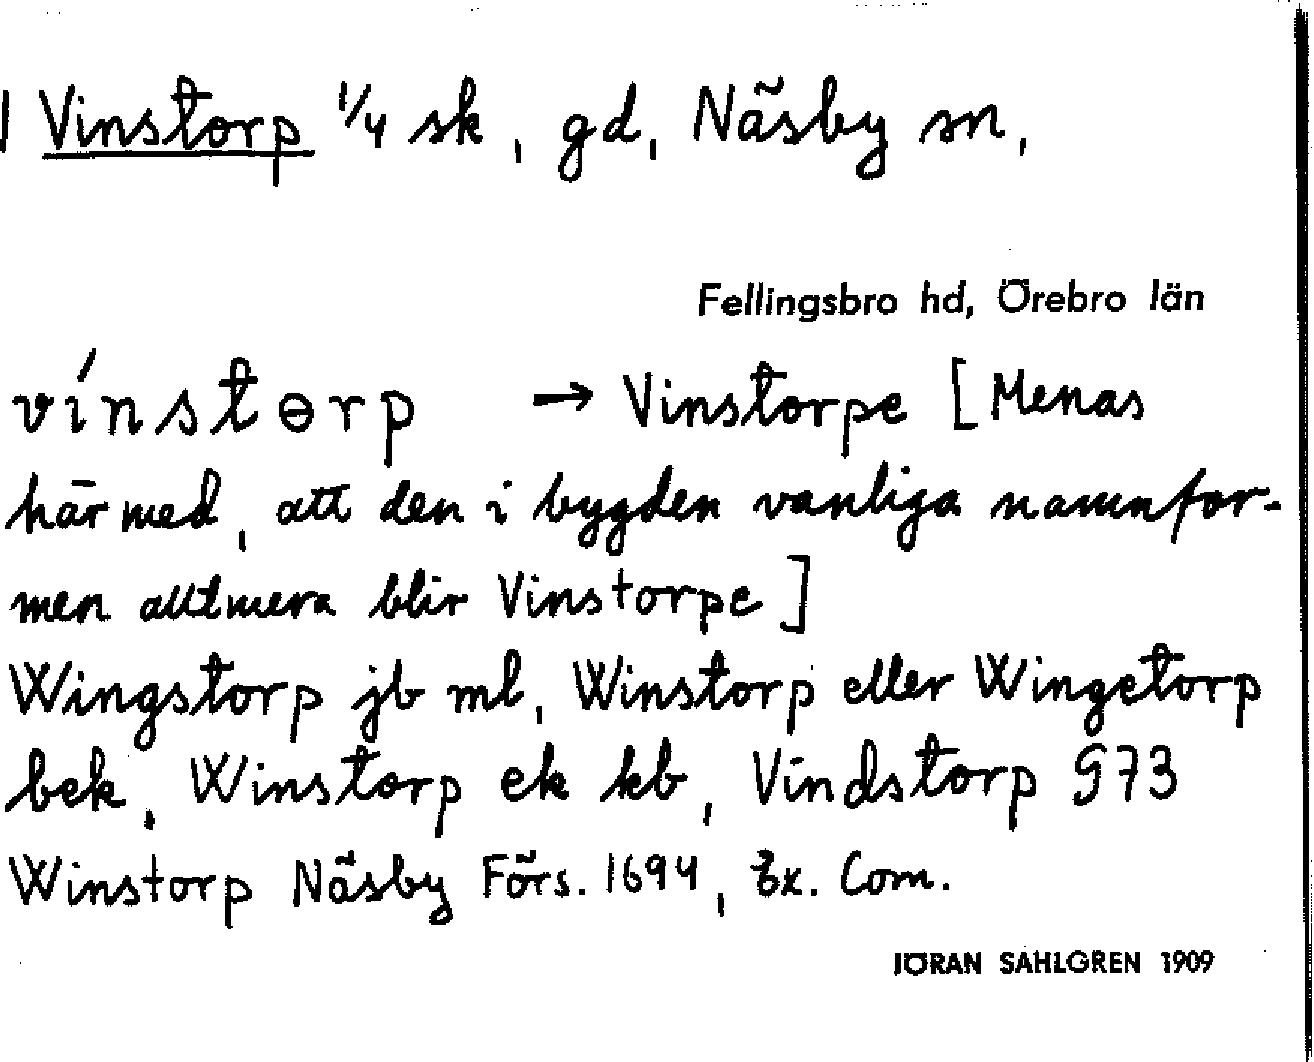 Vinstorp 1/4 sk, gd, Näsby sn,
Fellingsbro hd, Örebro län
vínstɵrp → Vinstorpe [Menas
härmed, att den i bygden vanliga namnfor-
men alltmera blir Vinstorpe]
Wingstorp jb ml, Winstorp eller Wingetorp
bek, Winstorp ek kb, Vindstorp G73
Winstorp Näsby Förs. 1694, Ex. Com.
JÖRAN SAHLGREN 1909